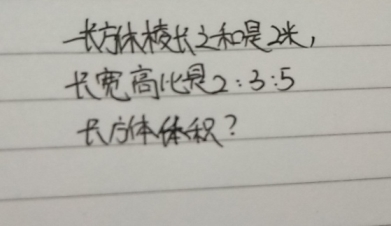 一长方体棱长之和是2米，
长宽高比是2:3:5
长方体体积？